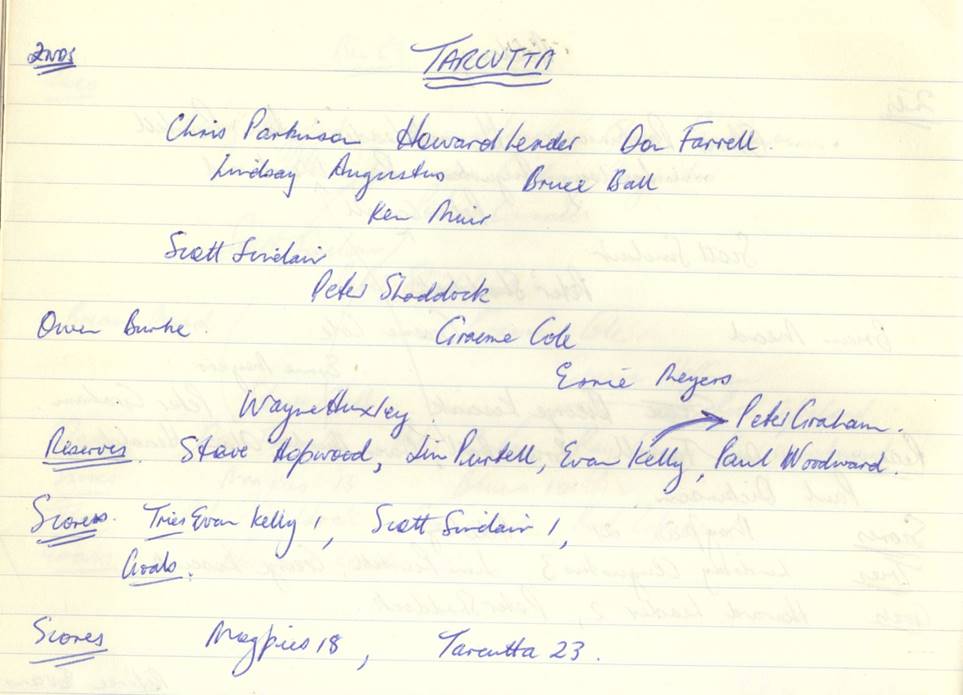 2NDS
TARCUTTA
Chris Parkinson Howard Lender Don Farrell.
Lindsay Augustus Bruce Ball
Ken Muir
Scott Sinclair
Peter Shaddock
Owen Burke Graeme Cole
Ernie Meyers
Wayne Huxley Peter Graham.
Reserves Steve Hopwood, Jim Purtell, Evan Kelly, Paul Woodward.
Scores. Tries Evan Kelly 1, Scott Sinclair 1,
Goals.
Scores Magpies 18, Tarcutta 23.